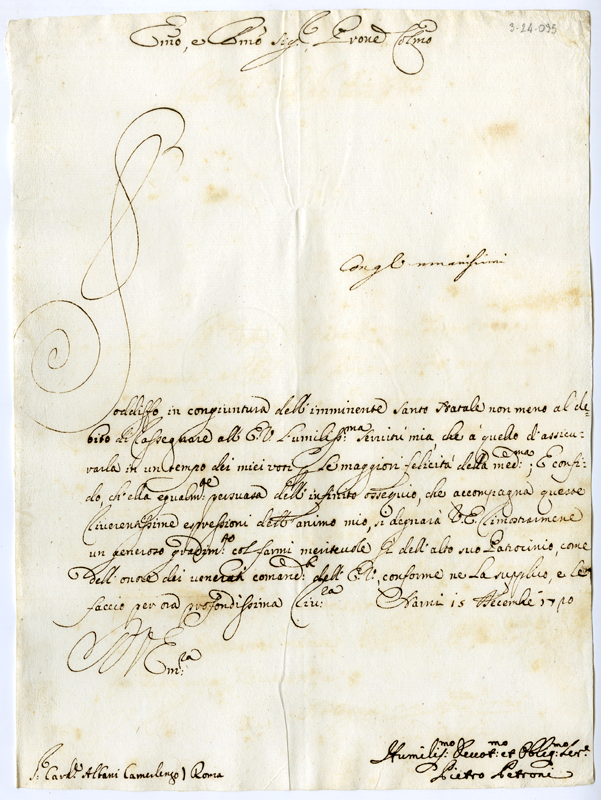 3-14-095
Emo, e Rmo Sig.r Prone Colmo
Con gl' umanissimi
Soddisfo in congiuntura dell' imminente Santo Natale non meno al de-
bito di rassegnare all' E.V. l'umiliss.ma servitù mia, che à quello d'assicu-
rarla in un tempo dei miei voti p le maggiori felicità della med.ma; E confi-
do, ch' ella egualm.te persuasa dell' infinito ossequio, che accompagna queste
riverentissime espressioni dell' animo mio, si degnarà V.E. rimostrarmene
un generoso gradim.to col farmi meritevole sì dell' alto suo Patrocinio, come
dell' onore dei venerati comandi dell' E.V., conforme ne la supplico, e le
faccio per ora profondissima riv.za Narni 15 Decembre
Em.za
S.r Card.l Albani Camerlengo) Roma
Humiliss.mo Devot.mo et Obblig.mo Ser.e
Pietro Petroni